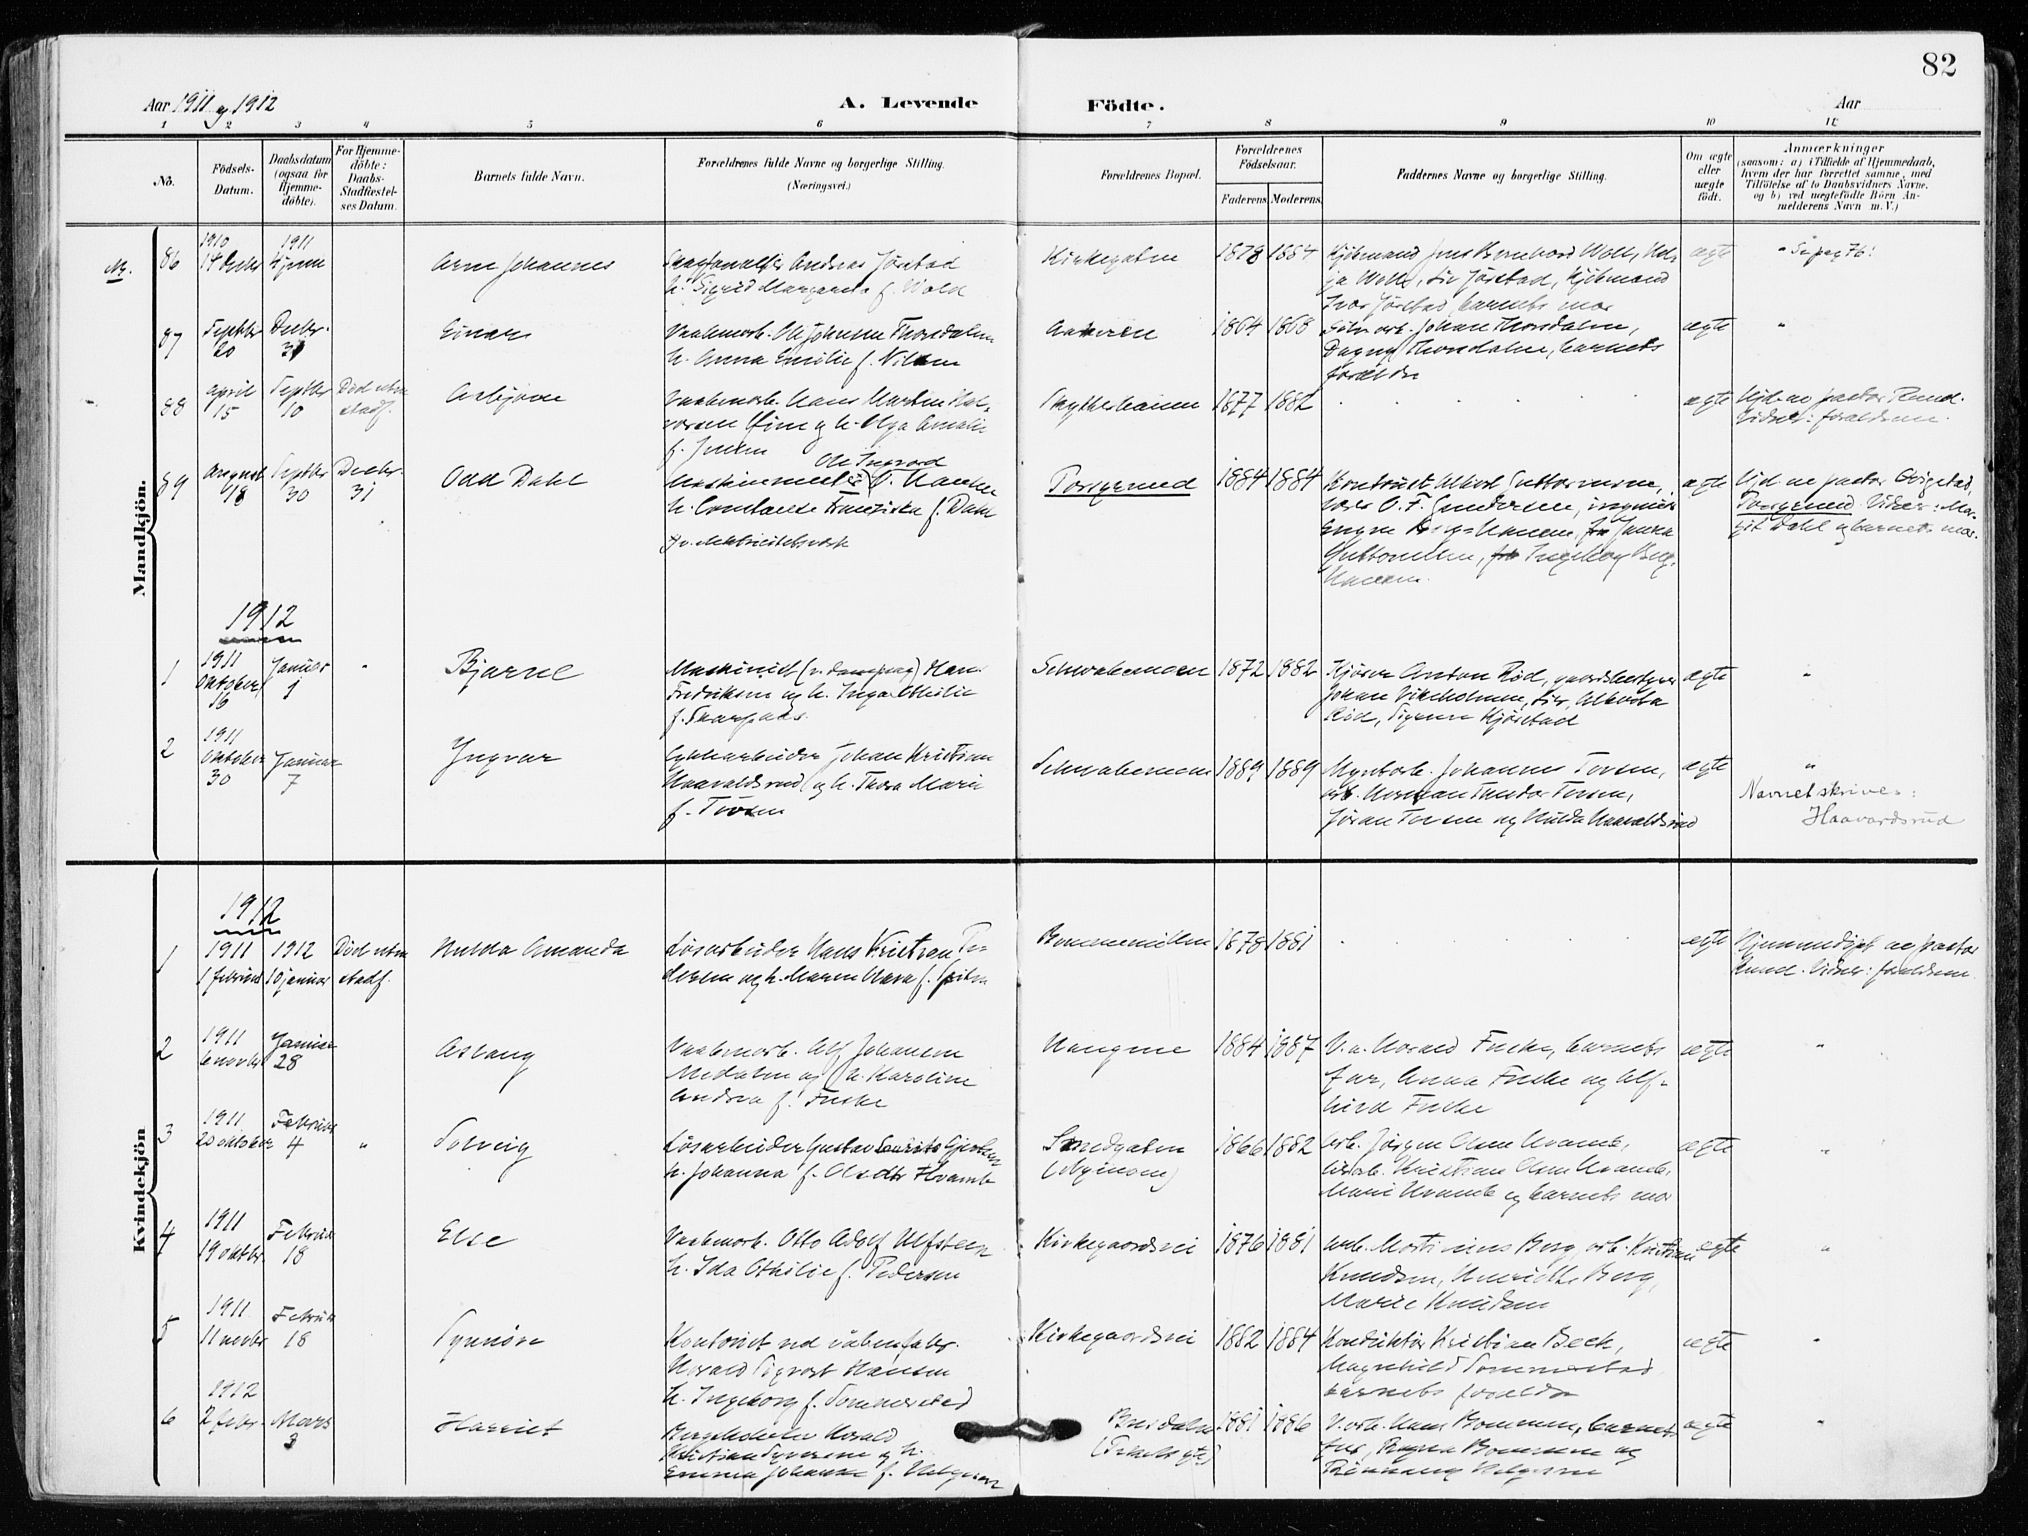 82
Aar 1911 og 1912
A. Levende Födte.
Aar
1 2 3 4 5 6 7 8 9 10 11
No.
Födsels-
Datum.
Daabsdatum
(ogsaa for
Hjemme-
döbte).
For Hjemme-
döbte:
Daabs-
Stadfæstel-
ses Datum.
Barnets fulde Navn.
Forældrenes fulde Navne og borgerlige Stilling.
(Næringsvei.)
Forældrenes Bopæl.
Forældrenes
Födselsaar.
Faderens Moderens
Faddernes Navne og borgerlige Stilling.
Om ægte
eller
uægte
födt.
Anmærkninger
(saasom: a) i Tilfælde af Hjemmedaab,
hvem der har forrettet samme, med
Tilföielse af to Daabsvidners Navne,
og b) ved uægtefödte Börn An-
melderens Navn m. V.)
Mandkjön.
86
1910
14 Decbr
1911
4 juni
Arne Johannes
Andreas Jørstad
h. Sigrid Margareta f. Wold
Kirkegaten
1878 1884
Kjöbmand Jens Bernhard Wold,
Jørstad, Kjöbmand
Ivar Jørstad, barnets mor
ægte
Se pag 76!
87
Septbr
20
Decbr.
31
Einar
Vaabenarb. Ole Johnsen Thorsdalen
h. Anna Emilie f. Nilsen
1864 1868
Johan Thorsdalen,
Dagny Thorsdalen, barnets
foreldre
ægte
88
April
15
Septbr
10
Død uten
stadf.
Asbjørn
Vaabenarb. Hans Martin Hal-
vorsen og h. Olga Amalie
f. Jensen
1877 1882
ægte
Hjd. av pastor Rund.
Vidner: forældrene.
89
August
18
Septbr
30
Decbr.
31
Odd Dahl
Ole Ingvard
Maskinmester O. Hansen
h. Constance Franziska f. Dahl
v. elektricitetsverk
Torsgerud
1884 1884
Kontorist Albert Guttormsen,
O. F. Gundersen, ingeniør
Hansen, fr Janna
Guttormsen, fr Ingeborg Berg-
Hansen.
ægte
Hjd. av pastor
Torsgerud. Vidner: Mar-
git Dahl og barnets mor.
1912
1
1911
Oktober
16
Januar
1
"
Bjarne
Maskinist (v. dampsag) Hans
Fredriksen og h. Inga Othilie
f. Skarpaas.
Schwabemoen
1872 1882
Kjører Anton Rød, gaardsbestyrer
Johan Vikeholmen, Alvida
Rød, Signe Kjørstad
ægte
"
2
1911
Oktober
30
Januar
7
Yngvar
Johan Kristian
Haavaldsrud og h. Thora Marie
f. Torsen
Schwabemoen
1889 1889
Myntarb. Johannes Torsen,
arb. Herman Teodor Torsen,
Jøran Torsen og Hulda Haavaldsrud
ægte
"
Navnet skrives:
Haavardsrud
Kvindekjön
1912
1
1911
1 februar
1912
10 januar
Død uten
stadf.
Hulda Amanda
Løsarbeider Hans Kristian Pe-
dersen og h. Maren f.
Bommemöllen
1878 1881
ægte
Hjemmedøpt av pastor
Rund. Vidner: forældrene
2
1911
6 novbr
Januar
28
Aslaug
Vaabenarb. Alf Johansen
Medalen og h. Karoline
Andrea f. Fuske
Haugene
1884 1887
V.a. Harald Fuske, barnets
far, Anna Fuske og Alf-
hild Fuske
ægte
"
3
1911
20 oktober
Februar
4
"
Solveig
Løsarbeider Gustav Laurits Gjertsen
h. Johanna f. Olsdtr Hvamb
Smedgaten
1866 1882
arb. Jørgen Olsen Hvamb,
Kristian Olsen Hvamb,
Marie Hvamb og barnets mor
ægte
"
4
1911
19 oktbr.
Februar
18
Else
Vaabenarb. Otto Adolf Ulfsteen
h. Ida Othilie f. Pedersen
Kirkegaardsvei
1876 1881
arb. Martinius Berg, arb. Kristian
Knudsen, Henriette Berg,
Marie Knudsen
ægte
"
5
1911
11 novbr
Februar
18
Synnøve
Kontorist ved våbenfabr.
Harald Sigvart Hansen
h. Ingeborg f. Sommerstad
Kirkegaardsvei
1882 1884
Konduktør Kristian Beck,
Magnhild Sommerstad
barnets foreldre
ægte
"
6
1912
2 febr.
Mars
3
Harriet
Harald
Kristian Syversen og h.
Emma Johanne f. Helgesen
1881 1886
V. arb. Hans Bommen, barnets
far, Ragna Bommen og
Rønnaug Helgesen
ægte
"